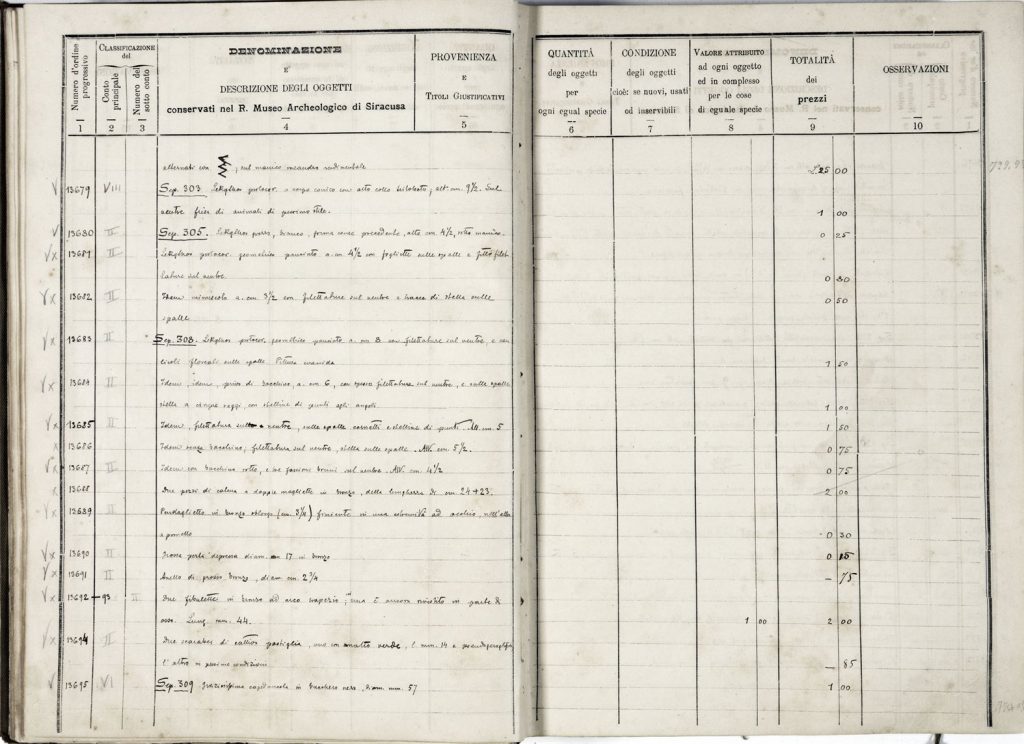 Numero d'ordine progressivo
CLASSIFICAZIONE
del
Conto principale
Numero del sotto conto
DENOMINAZIONE
E
DESCRIZIONE DEGLI OGGETTI
conservati nel R. Museo Archeologico di Siracusa
PROVENIENZA
E
TITOLI GIUSTIFICATIVI
QUANTITÀ
degli oggetti
per
ogni egual specie
CONDIZIONE
degli oggetti
cioè: se nuovi, usati
od inservibili
VALORE ATTRIBUITO
ad ogni oggetto
ed in complesso
per le cose
di eguale specie
TOTALITÀ
dei
prezzi
OSSERVAZIONI
1 2 3 4 5 6 7 8 9 10
alternati con ; sul manico meandro rudimentale 25 00
13679 VIII Sep. 303 Lekythos protocor. a corpo conico con alto collo ; alt. cm. 9 1/2. Sul
ventre fregi di animali di pessimo stile. 1 00
13680 II Sep. 305. Lekythos grezzo, bianco, forma come precedente, alto cm. 4 1/2, rotto manico. 0 25
13681 II Lekythos protocor. geometrico panciuto a. cm 4 1/2 con fogliette sulle spalle e fitta filet-
tature sul ventre. 0 30
13682 II Idem minuscolo a. cm 3 1/2 con filettature sul ventre e tracce di stella sulle 0 50
spalle
13683 II Sep. 308. Lekythos protocor. geometrico panciuto a. cm 8 con filettature sul ventre, e
floreali sulle spalle. Pittura svanida 1 50
13684 II Idem, idem, privo di bocchino, a. cm 6, con filettature sul ventre, e sulle spalle
stella a cinque raggi, con stelline di punti agli angoli. 1 00
13685 II Idem, filettatura sul ventre, sulle spalle cornetti e stelline di punti. Alt. cm. 5 1 50
13686 Idem senza bocchino, filettatura sul ventre, stella sulle spalle. Alt. cm. 5 1/2. 0 75
13687 II Idem con bocchino rotto, e tre fascioni bruni sul ventre. Alt. cm. 4 1/2 0 75
13688 Due pezzi di catena a doppie magliette in bronzo, della lunghezza di cm. 24+23. 2 00
13689 II Pendaglietto in bronzo oblungo (cm. 3 1/4) finiente in una estremità ad occhio, nell'altra
a pomello 0 30
13690 II Grossa perla depressa diam. 17 in bronzo 0 15
13691 II Anello di grosso bronzo, diam cm 2 3/4 - 75
13692 - 93 II Due fibulette in bronzo ad arco trapezio; una è ancora rivestita in parte di
osso. Lung. mm. 44. 1 00 2 00
13694 II Due scarabei di cattiva pastiglia, uno con smalto verde, l. mm. 14 e pseudogeroglifici,
l'altro in pessime condizioni - 85
13695 VI Sep. 309 Graziosissima in bucchero nero, diam. mm. 57 1 00